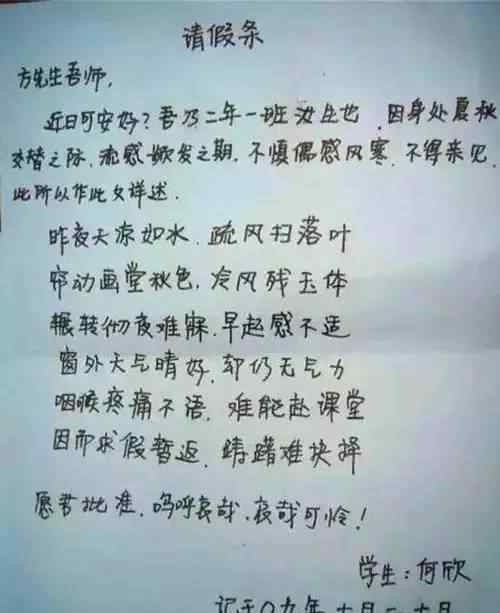 请假条
方先生吾师,
近日可安好?吾乃二年一班汝生也,因身处夏秋
交替之际,流感嫩发之期,不慎偶感风寒,不得亲见,
此所以作此文详述.
昨夜天凉如水,疏风扫落叶
帘动画堂秋色,冷风残玉体
辗转彻夜难寐,早起感不适
窗外天气晴好,却仍无气力
咽喉疼痛不语,难能赴课堂
因而求假暂返,踌躇难抉择
愿君批准,呜呼哀哉,哀哉可怜!
学生:何欣
记于09年